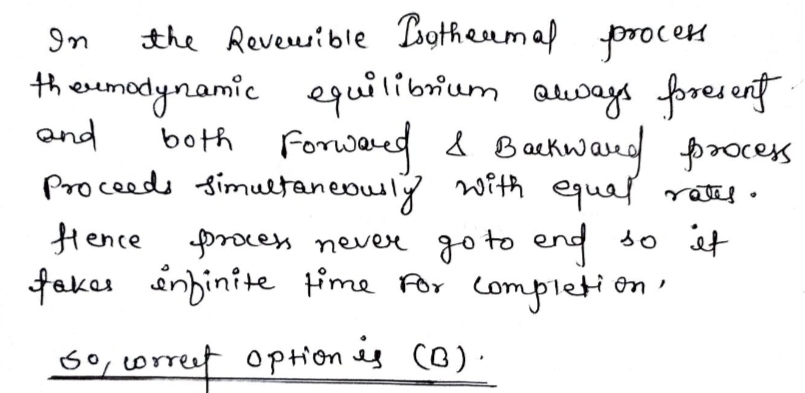 In the Reversible Isothermal process
thermodynamic equilibrium always present
and both Forward & Backward process
Proceeds simultaneously with equal rates.
Hence process never go to end so it
takes infinite time for completion,
so, correct option is (B).